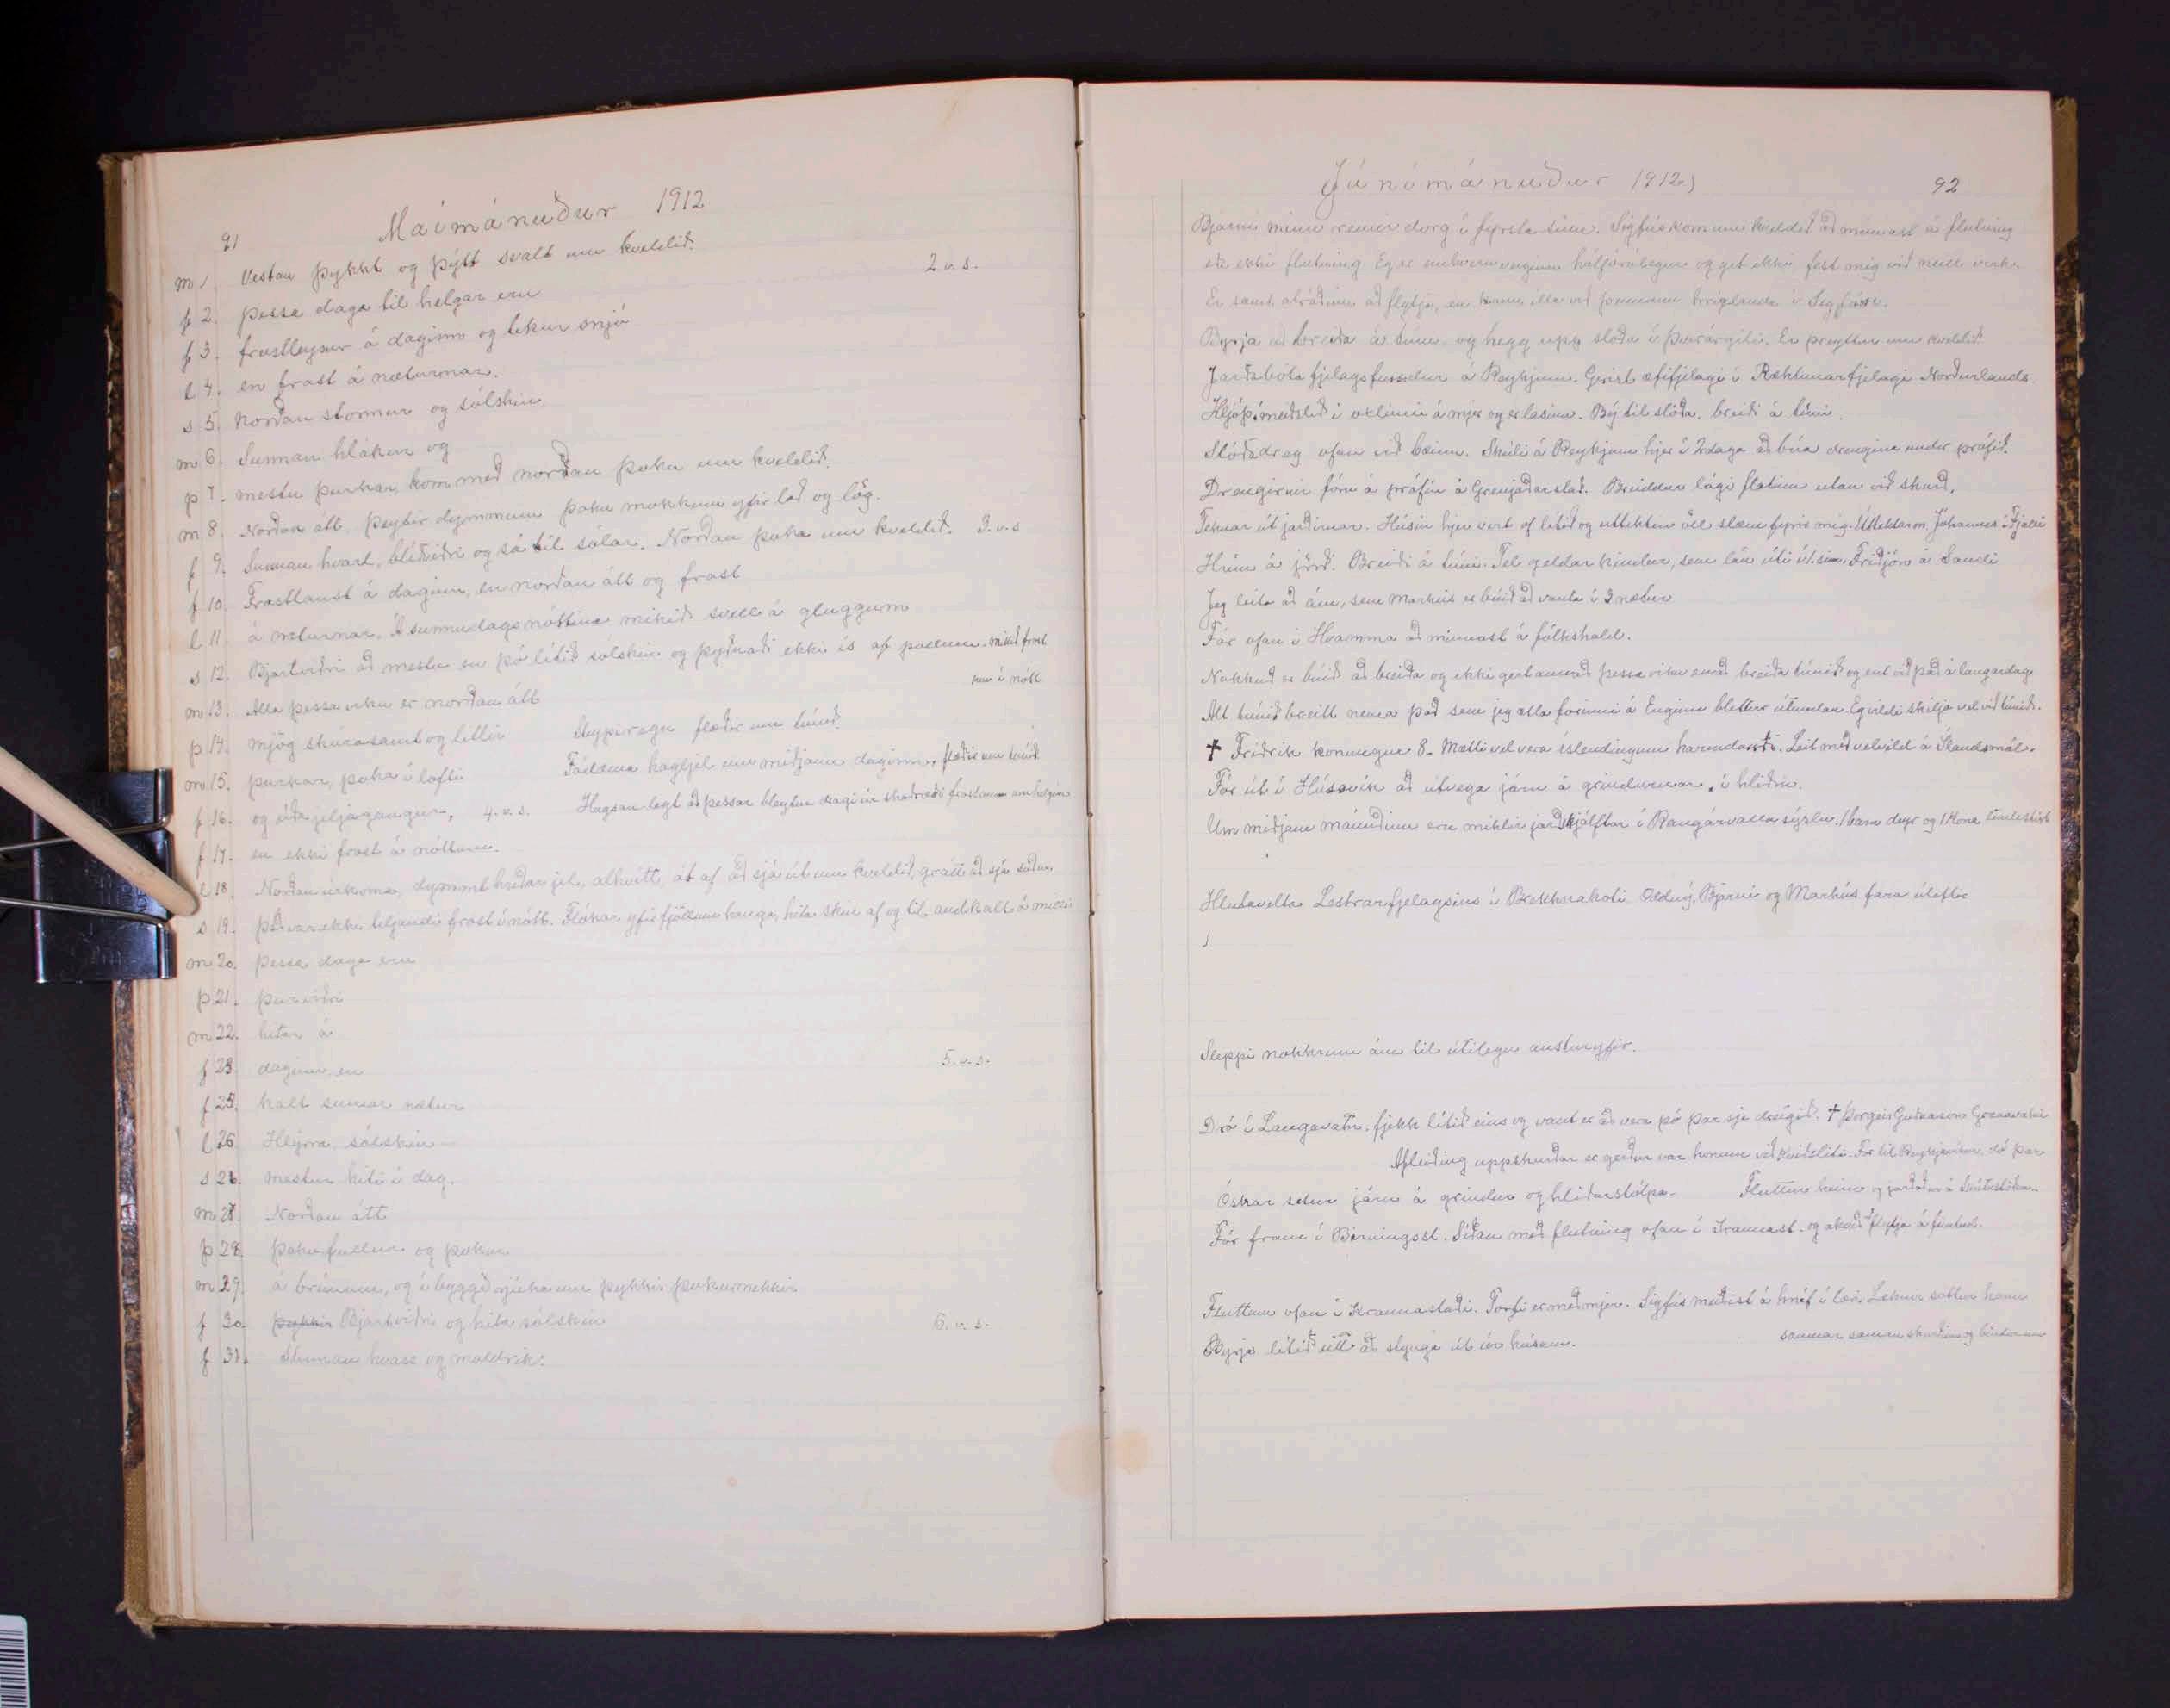 Maímánuður 1912
91
m 1. Vestan þykkt og þýtt svalt um kveldið.
2. v. s.
f 2. þessa daga til helgar eru
f 3. frostleysur á daginn og tekur snjó
l 4. en frost á næturnar.
s 5. Norðan stormur og sólskin.
m 6. Sunnan hlákur og
þ 7. mestu þurkar, kom með norðan þoku um kveldið.
m 8. Norðan átt, þeytir dymmum þoku mokkum yfir lað og lög.
f 9. Sunnan hvast, blíðviðri og sá til sólar. Norðan þoka um kveldið. 3. v. s
f 10. Frostlaust á daginn, en norðan átt og frost
l 11. á næturnar. Á sunnudagsnóttina mikið svell á gluggum
s 12. Bjartviðri að mestu en þó lítið sólskin og þyðnaði ekki ís af pollum. mikið frost
var í nótt
m 13. Alla þessa viku er norðan átt
þ 14. mjög skúrasamt og litlir Steypiregn flæðir um túnið.
m 15. þurkar, þoka í lofti Fádæma hagljel um miðjann daginn, flæðir um túnið
f 16. og úða jeljagangur, 4. v. s. Hugsanlegt að þessar bleytur dragi úr skaðræði frostanna um helgina
f 17. en ekki frost á nóttum.
l 18. Norðan úrkoma, dymmt hríðar jel, alhvítt, út af að sjá út um kveldið, grátt að sjá suður
s 19. það var ekki teljandi frost í nótt. Flókar yfir fjöllum hanga, hita skin af og til, andkalt á milli
m 20. þessa daga eru
þ 21. þurviðri
m 22. hitar á
f 23. daginn, en
5. v. s.
f 25. kalt sumar nætur
l 26 Hlýrra, sólskin
s 26. mestur hiti í dag.
m 27. Norðan átt
þ 28. þokufullur og þokur
m 29. á brúnum, og í byggð rjúka um þykkir þokumekkir
f 30. þykkir Bjartviðri og hita sólskin
6. v. s.
f 31. Sunnan hvass og moldrik.
Júnímánuður 1912)
92
Bjarni minn rennir dorg í fyrsta sinn. Sigfús kom um kveldið að minnast á flutning
eða ekki flutning Eg er einhvernveginn hálfórólegur og get ekki fest mig við neitt verk.
Er samt afráðinn að flytja, en kann illa við þennann hringlanda í Sigfúsi.
Byrja að breiða á túni og hegg upp slóða í þverárgili. Er þreyttur um kveldið
Jarðabóta fjelagsfundur á Reykjum. Gerist æfifjelagi í Ræktunarfjelagi Norðurlands
Hljóp í meiðslið í öxlinni á mjer og er lasinn. Bý til slóða. breiði á túni.
Slóðadreg ofan við bæinn. Skúli á Reykjum hjer í 2 daga að búa drengina undir prófið.
Drengirnir fóru á prófin á Grenjaðarstað. Breiddur lági flatinn utan við skurð.
Teknar út jarðirnar. Húsin hjer vert of lítið og úttektin öll slæm fyrir mig. Úttektarm. Jóhannes Fjalli
Hrím á jörð. Breiði á túni. Tel geldar kindur, sem láu úti í 1. sinn. Friðjón á Sandi
Jeg leita að ám, sem Markús er búið að vanta í 3 nætur
Fór ofan í Hvamma að minnast á fólkshald.
Nokkuð er búið að breiða og ekki gert annað þessa viku en að breiða túnið og ent við það á laugardag.
Alt túnið breitt nema það sem jeg ætla forinni á Enginu blettur útundan. Eg vildi skilja vel við túnið.
† Friðrik konungur 8. Mætti vel vera íslendingum harmdauði. Leit með velvild á Íslandsmál.
Fór út í Húsavík að útvega járn á grindurnar, í hliðin.
Um miðjann mánuðinn eru miklir jarðskjálftar í Rangárvalla sýslu. 1 barn deyr og 1 kona limlestist
Hlutavelta Lestrarfjelagsins í Brekknakoti. Oddný, Bjarni og Markús fara úteftir
Sleppi nokkrum ám til útilegu austuryfir.
Dró í Langavatn. fjekk lítið eins og vant er að vera þó þar sje dregið. † Þorgeir Guðnason Grænavatni
Afleiðing uppskurðar er gerður var honum við kviðsliti. Fór til Reykjavíkur, dó þar
Óskar setur járn á grindur og hliðarstólpa. Fluttur heim og jarðaður á Skútustöðum.
Fór fram í Birningsst. Síðan með flutning ofan í Kraunast. og ákveð að flytja á fimtud.
Fluttum ofan í Kraunastaði. Torfi er með mjer. Sigfús meiðist á hníf í læri. Læknir sóttur hann
saumar saman skurðinn og bindur um
Byrja lítið eitt að stynga út úr húsum.